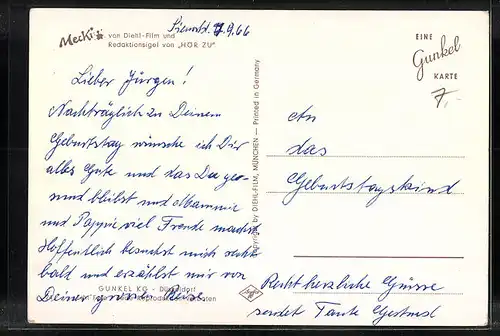 Mecki von Diehl-Film und
Redaktionsigel von „HÖR ZU"
.9.66
Lieber Jürgen!
Nachträglich zu Deinem
Geburtstag wünsche ich Dir
alles Gute und das Du ge-
sund bleibst und Mammie
und Pappie viel Freude machst
Hoffentlich besuchst mich recht
bald und erzählst mir von
Deiner Reise
GUNKEL KG - Düsseldorf
Copyright by DIEHL-FILM, MÜNCHEN — Printed in Germany
EINE
Gunkel
KARTE
7,-
An
das
Geburtstagskind
Recht herzliche Grüsse
sendet Tante Gertrud